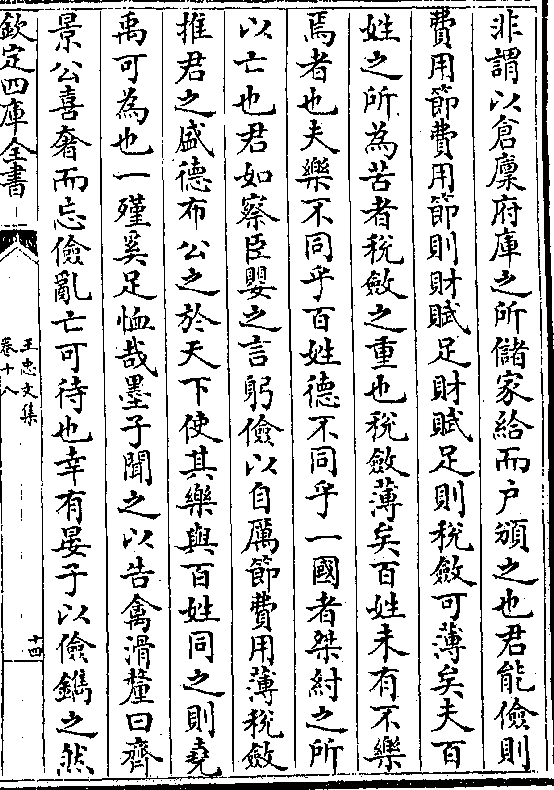 非謂以倉廩府庫之所儲家給而户頒之也君能儉則
費用節費用節則財賦足財賦足則稅斂可薄矣夫百
姓之所為苦者稅斂之重也稅斂薄矣百姓未有不樂
焉者也夫樂不同乎百姓德不同乎一國者桀紂之所
以亡也君如察臣嬰之言躬儉以自厲節費用薄稅斂
推君之盛德布公之於天下使其樂與百姓同之則堯
禹可為也一殣奚足恤哉墨子聞之以告禽滑釐曰齊
景公喜奢而忘儉亂亡可待也幸有晏子以儉鐫之然
欽定四庫全書
王忠文集
卷十八
十四